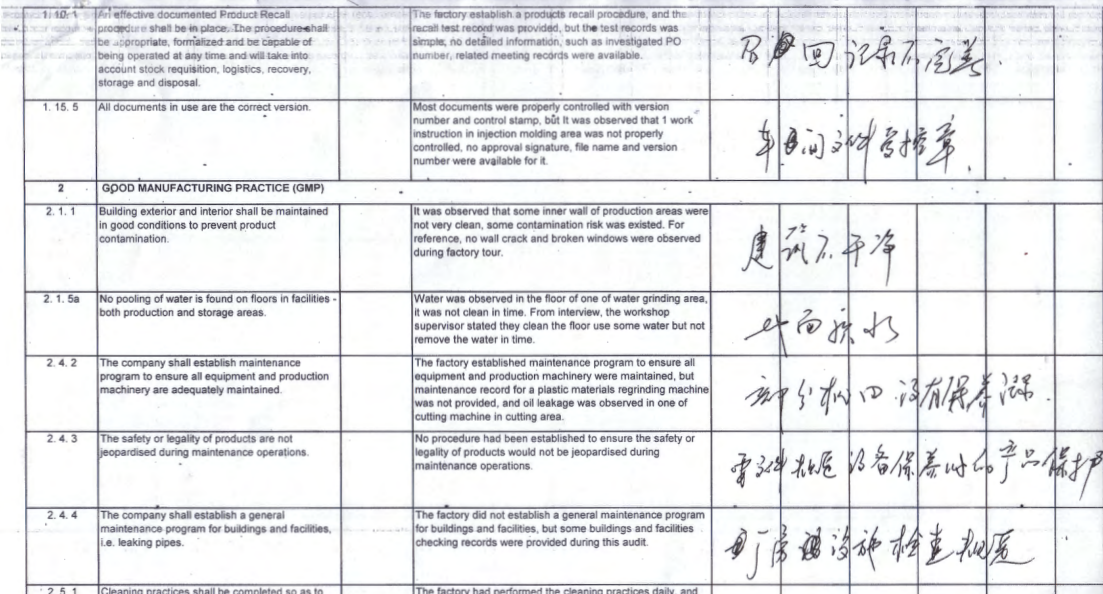 1. 10. 1 An effective documented Product Recall
procedure shall be in place. The procedure shall
be appropriate, formalized and be capable of
being operated at any time and will take into
account stock requisition, logistics, recovery,
storage and disposal.
The factory establish a products recall procedure, and the
recall test record was provided, but the test records was
simple, no detailed information, such as investigated PO
number, related meeting records were available.
回 记录不完善.
1. 15. 5 All documents in use are the correct version.
Most documents were properly controlled with version
number and control stamp, but It was observed that 1 work
instruction in injection molding area was not properly
controlled, no approval signature, file name and version
number were available for it.
车间文件受控章.
2 GOOD MANUFACTURING PRACTICE (GMP)
2. 1. 1 Building exterior and interior shall be maintained
in good conditions to prevent product
contamination.
It was observed that some inner wall of production areas were
not very clean, some contamination risk was existed. For
reference, no wall crack and broken windows were observed
during factory tour.
建筑不干净
2. 1. 5a No pooling of water is found on floors in facilities -
both production and storage areas.
Water was observed in the floor of one of water grinding area,
it was not clean in time. From interview, the workshop
supervisor stated they clean the floor use some water but not
remove the water in time.
地面积水
2. 4. 2 The company shall establish maintenance
program to ensure all equipment and production
machinery are adequately maintained.
The factory established maintenance program to ensure all
equipment and production machinery were maintained, but
maintenance record for a plastic materials regrinding machine
was not provided, and oil leakage was observed in one of
cutting machine in cutting area.
部分机 没有保养
2. 4. 3 The safety or legality of products are not
jeopardised during maintenance operations.
No procedure had been established to ensure the safety or
legality of products would not be jeopardised during
maintenance operations.
需文件规定设备保养时的产品保护
2. 4. 4 The company shall establish a general
maintenance program for buildings and facilities,
i.e. leaking pipes.
The factory did not establish a general maintenance program
for buildings and facilities, but some buildings and facilities
checking records were provided during this audit.
厂房 设施检查规定
2. 5. 1 Cleaning practices shall be completed so as to
The factory had performed the cleaning practices daily, and